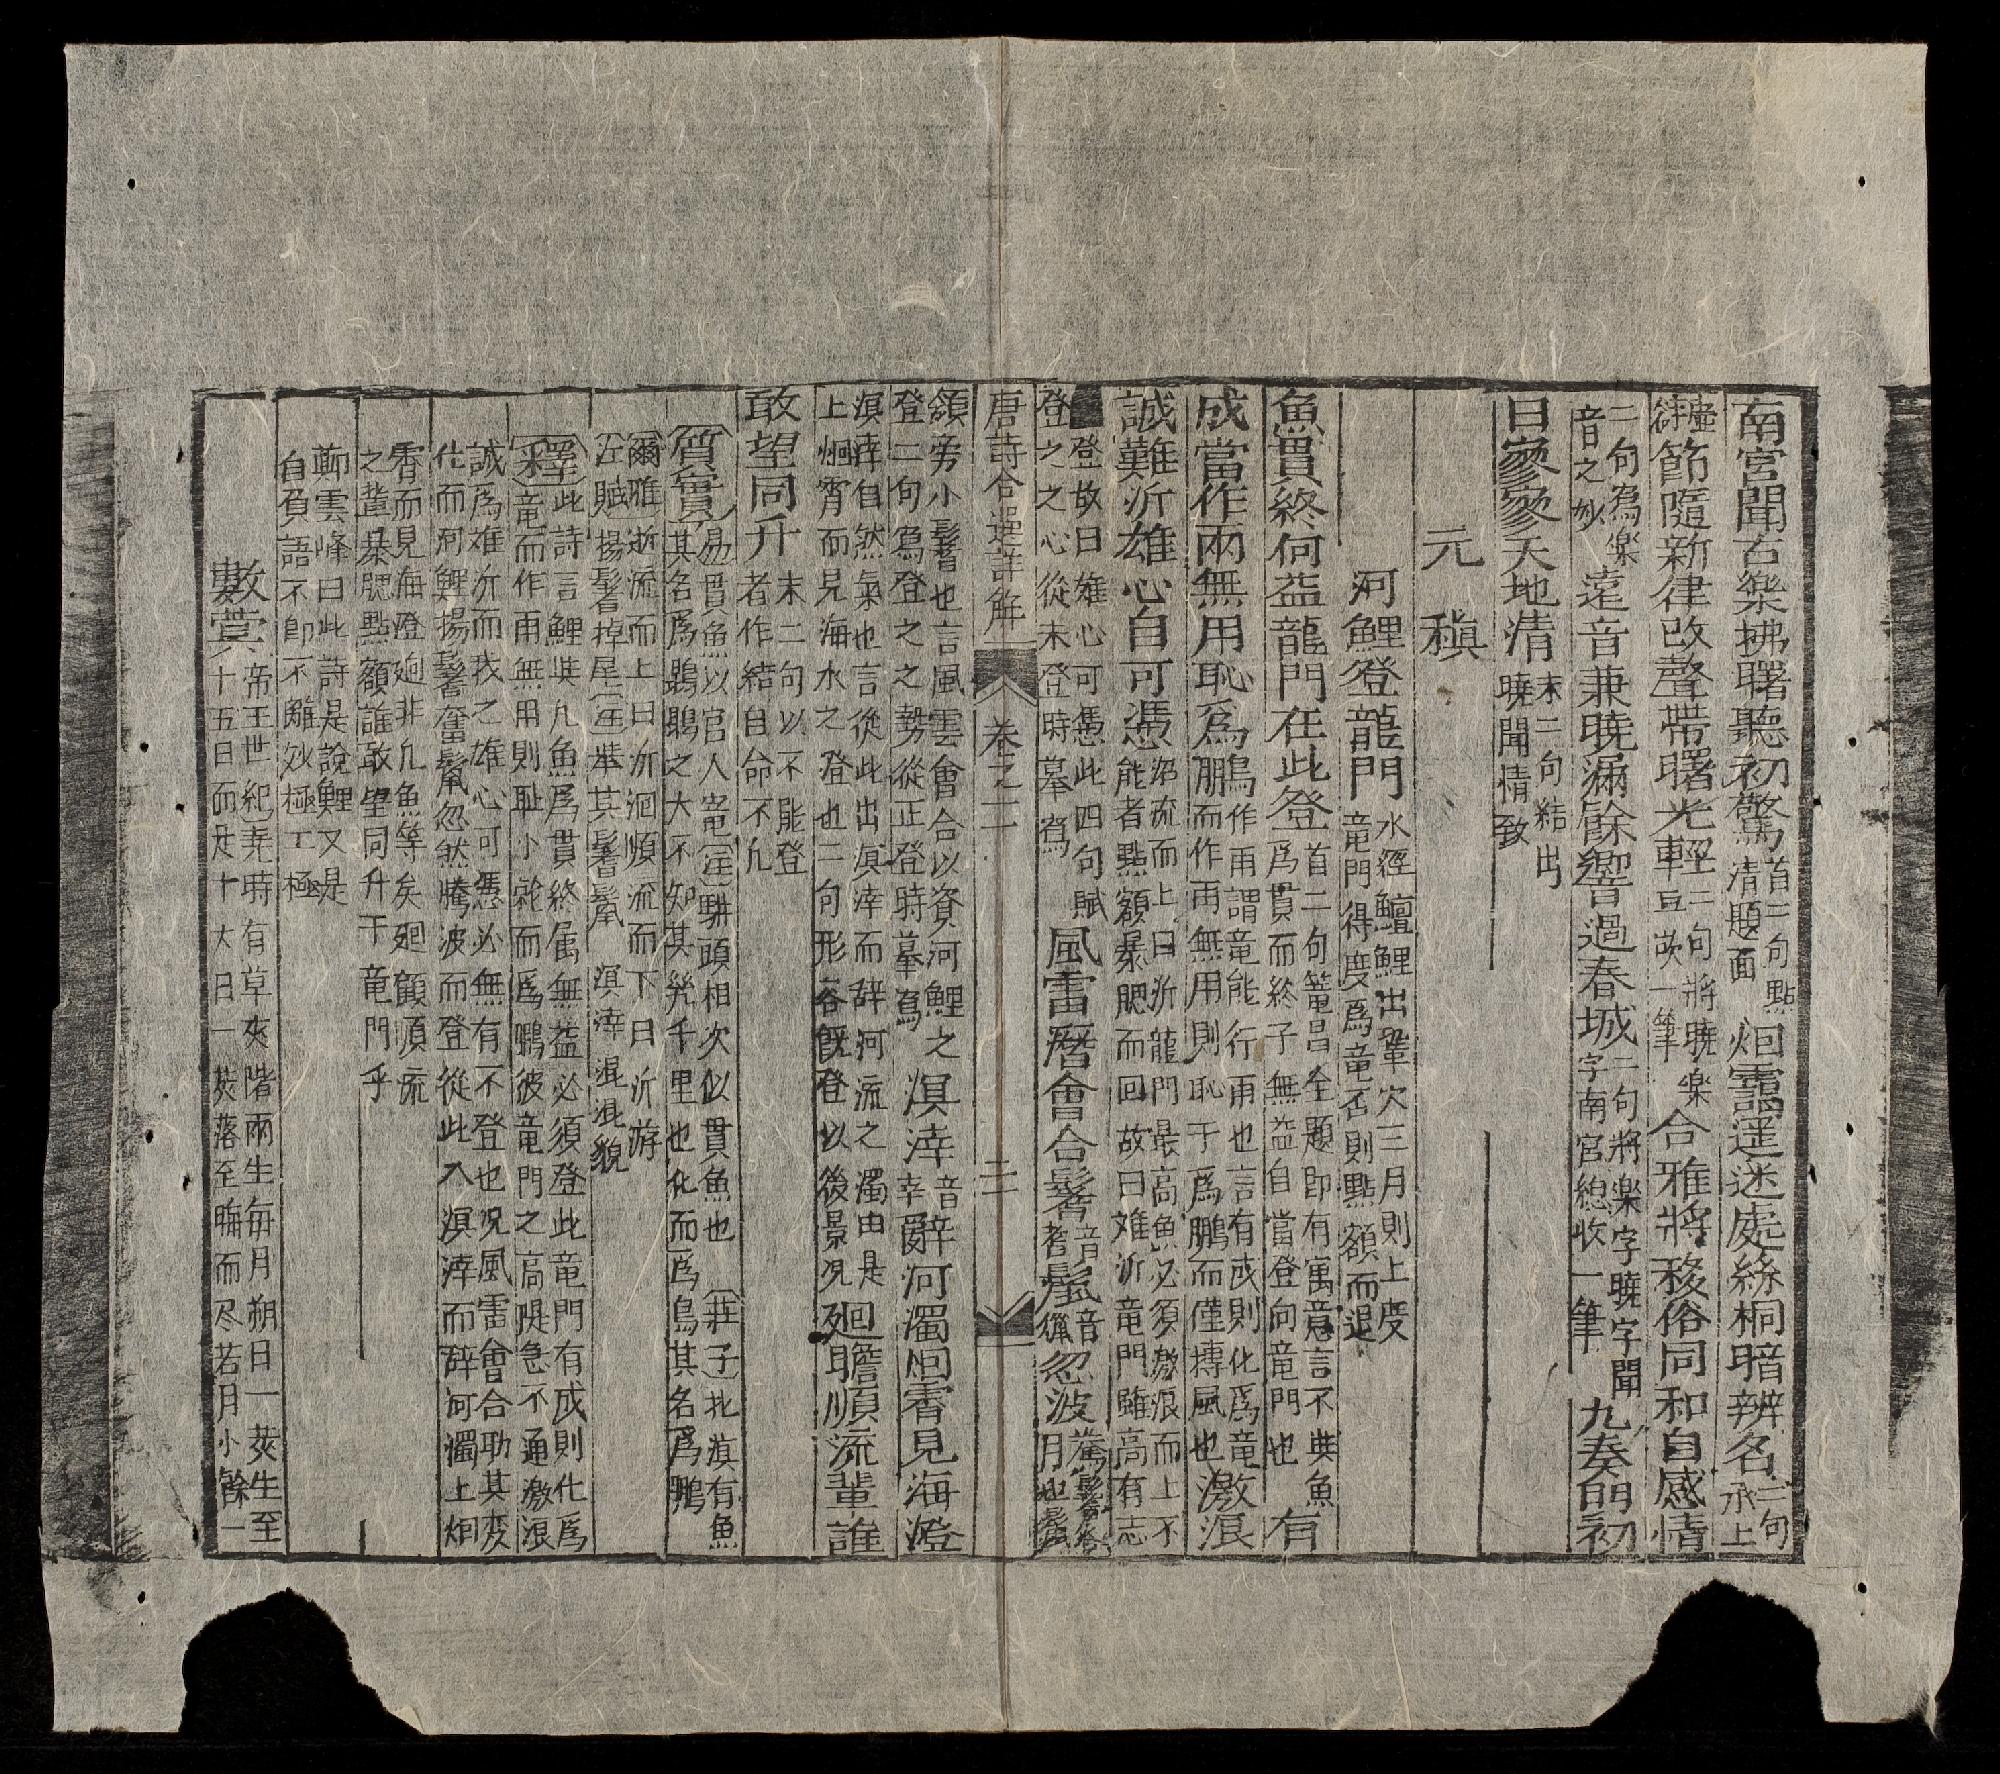 南宮聞古樂拂曙聽初驚首二句點清題面烟靄遥迷處絲桐暗辨名二句承上
節隨新律改聲帶曙光輕二句將曉樂車互嵌一筆合雅將移俗同和自感情
二句為樂音之妙遠音兼曉漏餘響過春城二句將樂字曉字聞字南宮總收一筆九奏明初
日寥寥天地清末二句結出曉聞情致
元稹
河鯉登龍門水經鱣鯉出鞏穴三月則上度竜門得度爲竜否則點額而退
魚貫終何益龍門在此登首二句籠昌全題即有寓意言不與魚爲貫而終子無益自當登向竜門也有
成當作雨無用恥爲鵬作雨謂竜能行雨也言有成則化爲竜而作雨無用則恥于爲鵬而僅摶風也激浪
誠難泝雄心自可憑沼流而上曰泝龍門最高魚必須激浪而上不能者點額暴腮而回故曰难泝竜門雖高有志
登故曰雄心可憑此四句賦登之之心從未登時摹寫風雷潛會合鬐音耆鬣音獵忽波
唐詩合選詳解 卷之二 二
頷旁小鬐也言風雲會合以資河鯉之登二句爲登之之勢從正登時摹寫溟涬音幸辭河濁烟霄見海澄
溟涬自然氣也言從此出溟涬而辞河流之濁由是上烟霄而見海水之澄也二句形容既登以後景况廻瞻順流輩誰
敢望同升末二句以不能登者作結自命不凡
質實易貫魚以官人竜註駢頭相次似貫魚也 莊子北溟有魚其名爲鵾鵾之大不知其幾千里也化而爲鳥其名爲鵬
爾雅逝流而上曰泝洄順流而下曰泝游江賦揚鬐掉尾註举其鬐鬣 溟涬混混貌
釋此詩言鯉與凡魚爲貫終属無益必須登此竜門有成則化爲竜而作雨無用則恥小就而爲鵬彼竜門之高隄急不通激浪
誠爲难泝而我之雄心可憑必無有不登也况風雷會合助其变化而河鯉揚鬐奮鬣忽然騰波而登從此入溟涬而辞河濁上烟
霄而見海澄廻非凡魚等矣廻顧順流之輩暴腮點額誰敢望同升于竜門乎
鄿雲峰曰此詩是說鯉又是自負語不即不離妙極工極
數蓂帝王世紀堯時有草夾階而生每月朔日一莢生至十五日而足十六日一莢落至晦而尽若月小餘一